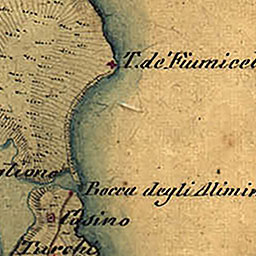 T. de' Fiumicel
Bocca degli Alimin
Casino
Turchi